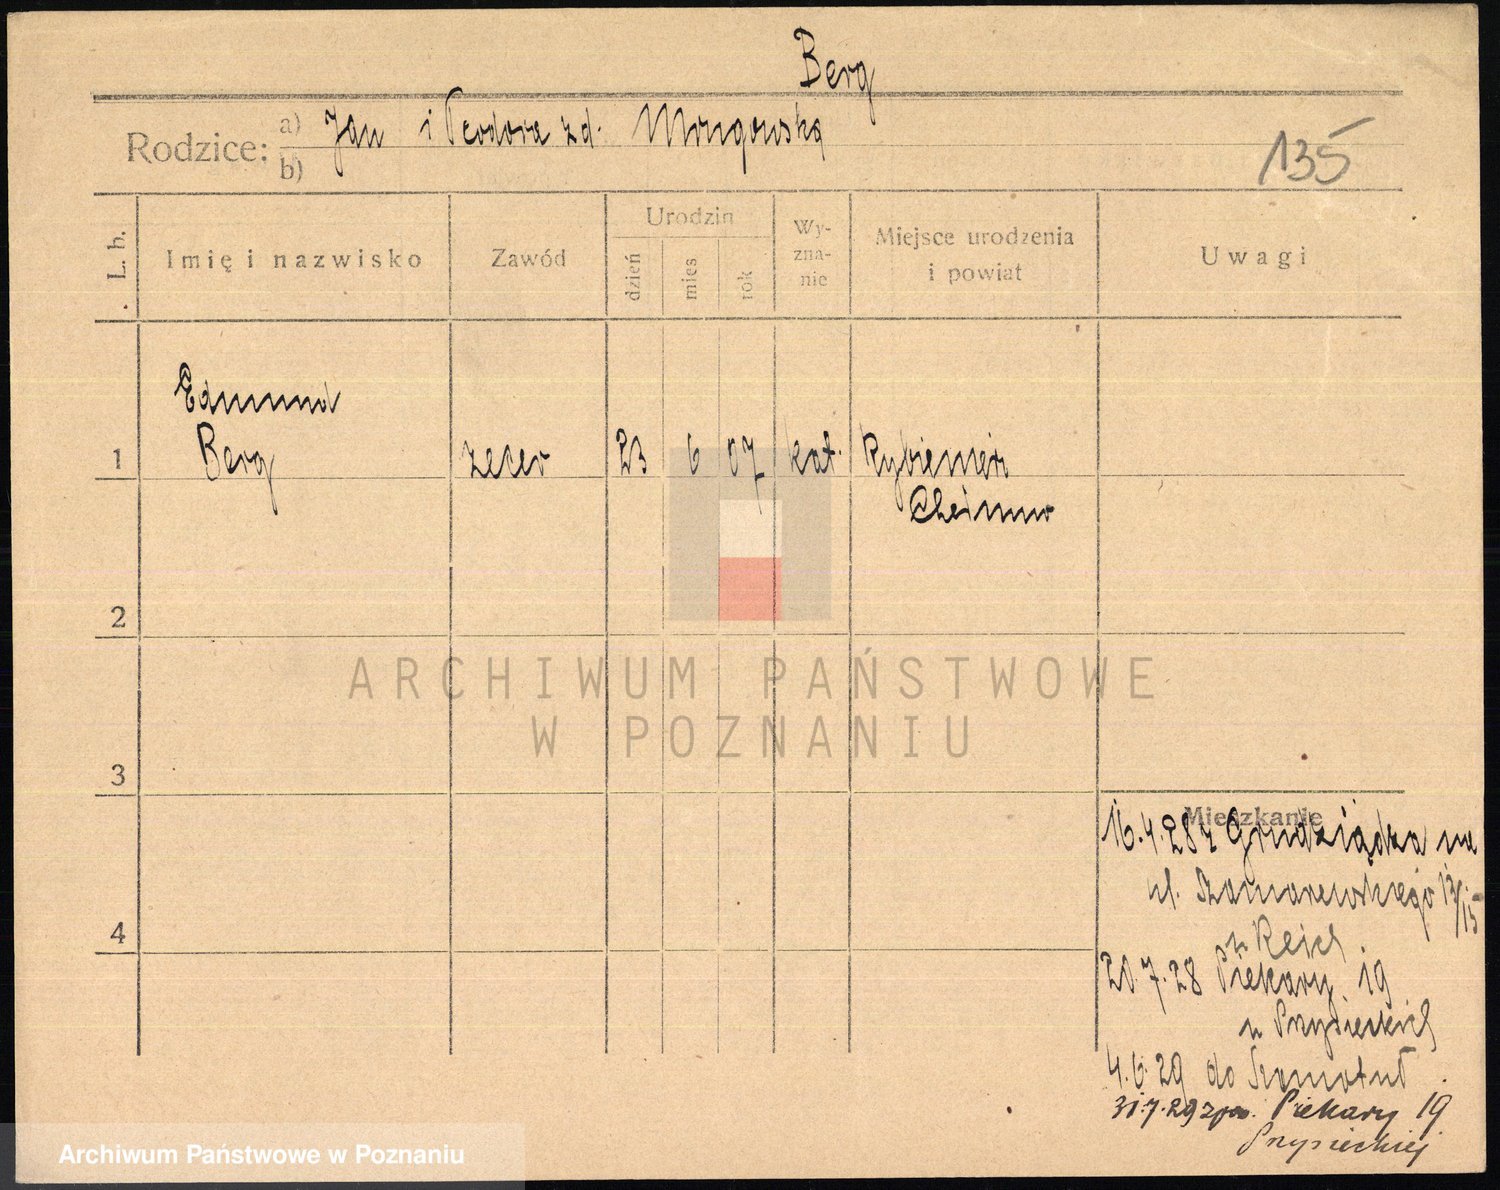 Berg
Rodzice: a) Jan i Teodora zd. Mongowska
b)
135
L. b. Imię i nazwisko Zawód Urodzin dzień mies rok Wy-zna-nie Miejsce urodzenia i powiat Uwagi
Edmund
1 Berg zecer 23 6 07 kat. Rybieniec
Chełmno
2
3
4
Mieszkanie
16.4.28 z Grudziądza na
ul. Szamarzewskiego 13/15
u Reich.
20.7.28 Piekary 19
u Przysieckich
4.6.29 do Szamotuł.
31.7.29 Piekary 19
Przysieckiej
ARCHIWUM PAŃSTWOWE
W POZNANIU
Archiwum Państwowe w Poznaniu